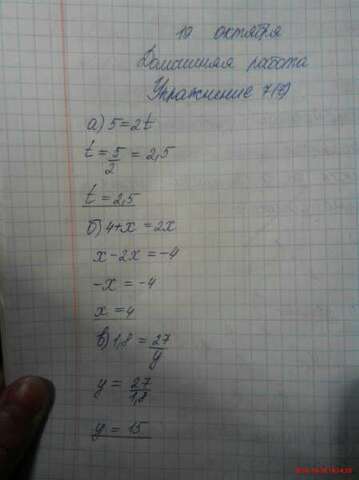 19 октября
Домашняя работа
Упражнение 7(8)
а) 5=2t
t = 5/2 = 2,5
t = 2,5
б) 4+x = 2x
x-2x = -4
-x = -4
x = 4
в) 1,8 = 27/y
y = 27/1,8
y = 15